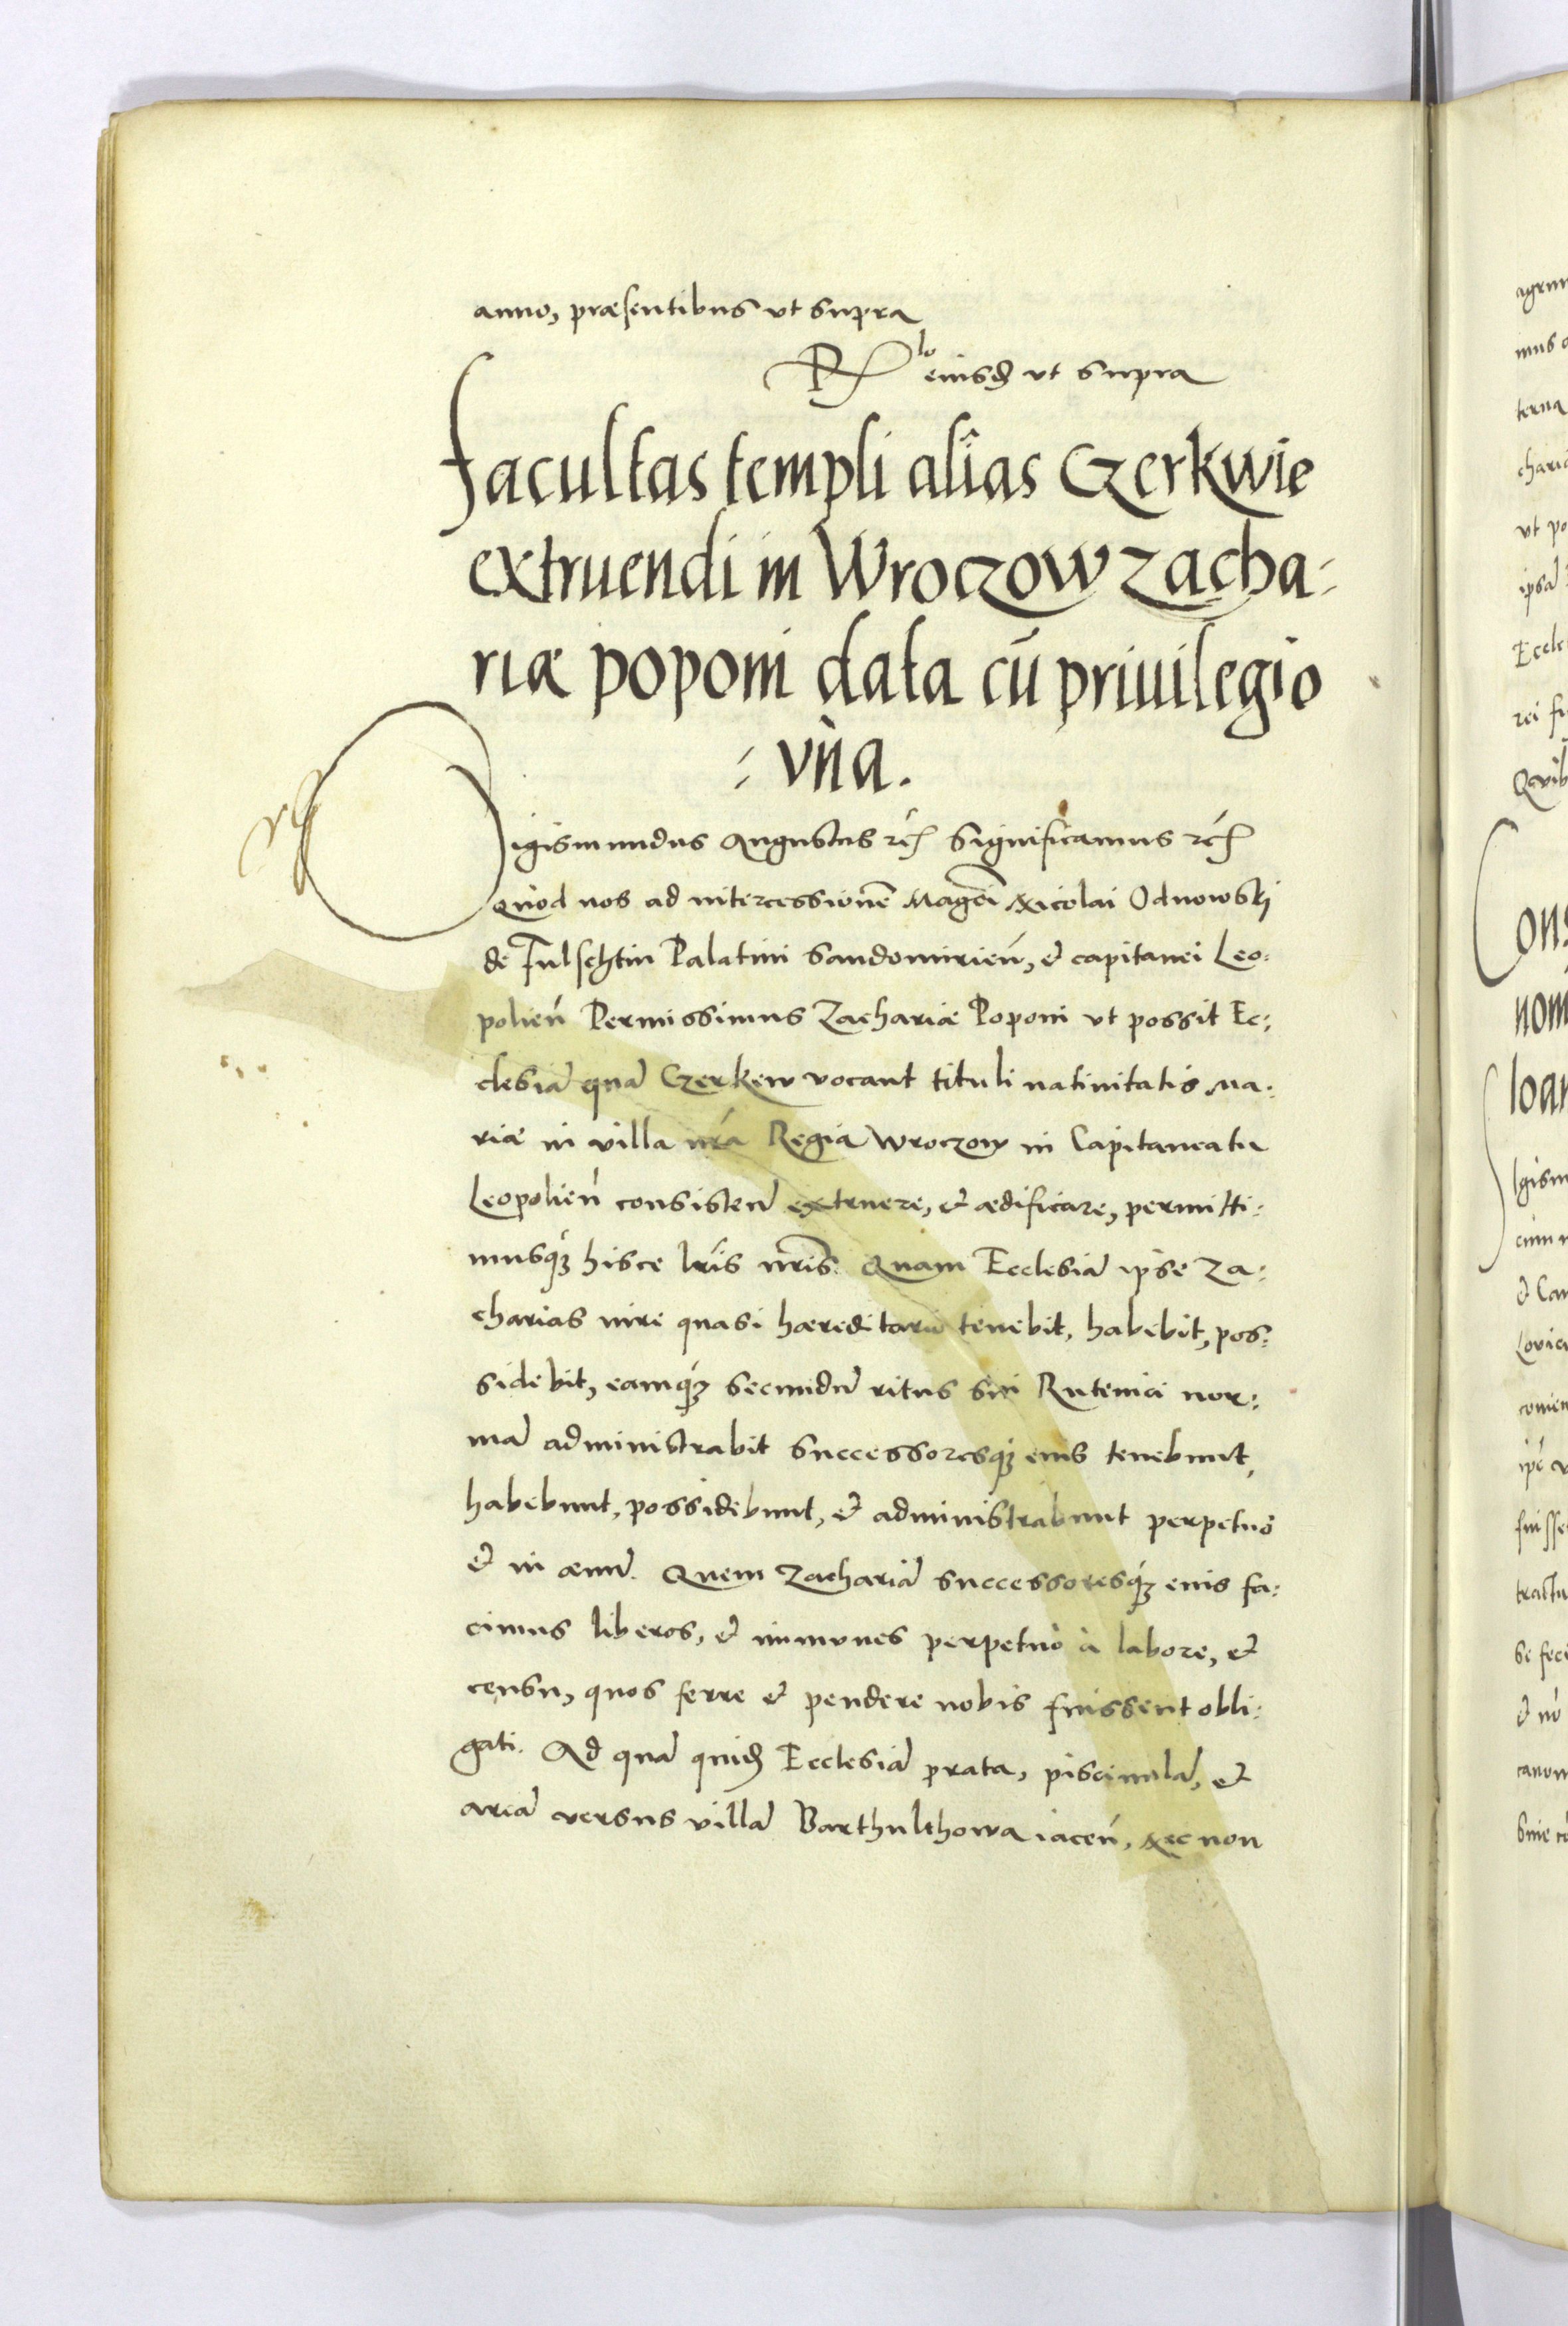 anno, præsentibus vt supra
R lo eiusd vt supra
Facultas templi alias Czerkwie
extruendi in Wroczow Zacha:
riæ poponi data cū priuilegio
: vna.
Sigismundus Augustus rc̃ Significamus rc̃
Quod nos ad intercessionē Magci Nicolai Odnowski
de Fulschtin Palatini Sandomirien̄, et capitanei Leo:
polien̄ Permissimus Zachariæ Poponi vt possit Ec:
clesiā quā Czerkew vocant tituli natiuitatis Ma:
riæ in villa nr̄a Regia Wroczow in Capitaneatu
Leopolien̄ consisten̄ extruere, et ædificare, permitti:
musq̃ hisce lr̄is nr̄is. Quam Ecclesiā ipse Za:
charias iure quasi hæreditario tenebit, habebit, pos:
sidebit, eamq̃ secundū ritus sui Rutenici nor:
mā administrabit successoresq̃ eius tenebunt,
habebunt, possidebunt, et administrabunt perpetuo
et in æuū. Quem Zachariā successoresq̃ eius fa:
cimus liberos, et immunes perpetuò à labore, et
censu, quos ferre et pendere nobis fuissent obli:
gati. Ad quā quid Ecclesiā prata, pisciculā, et
areā versus villā Barthulthowa iacen̄, Nec non
agrum
mus
terna
charia
vt po
ipsā
Eccle
rei
Cons
nom
Ioan